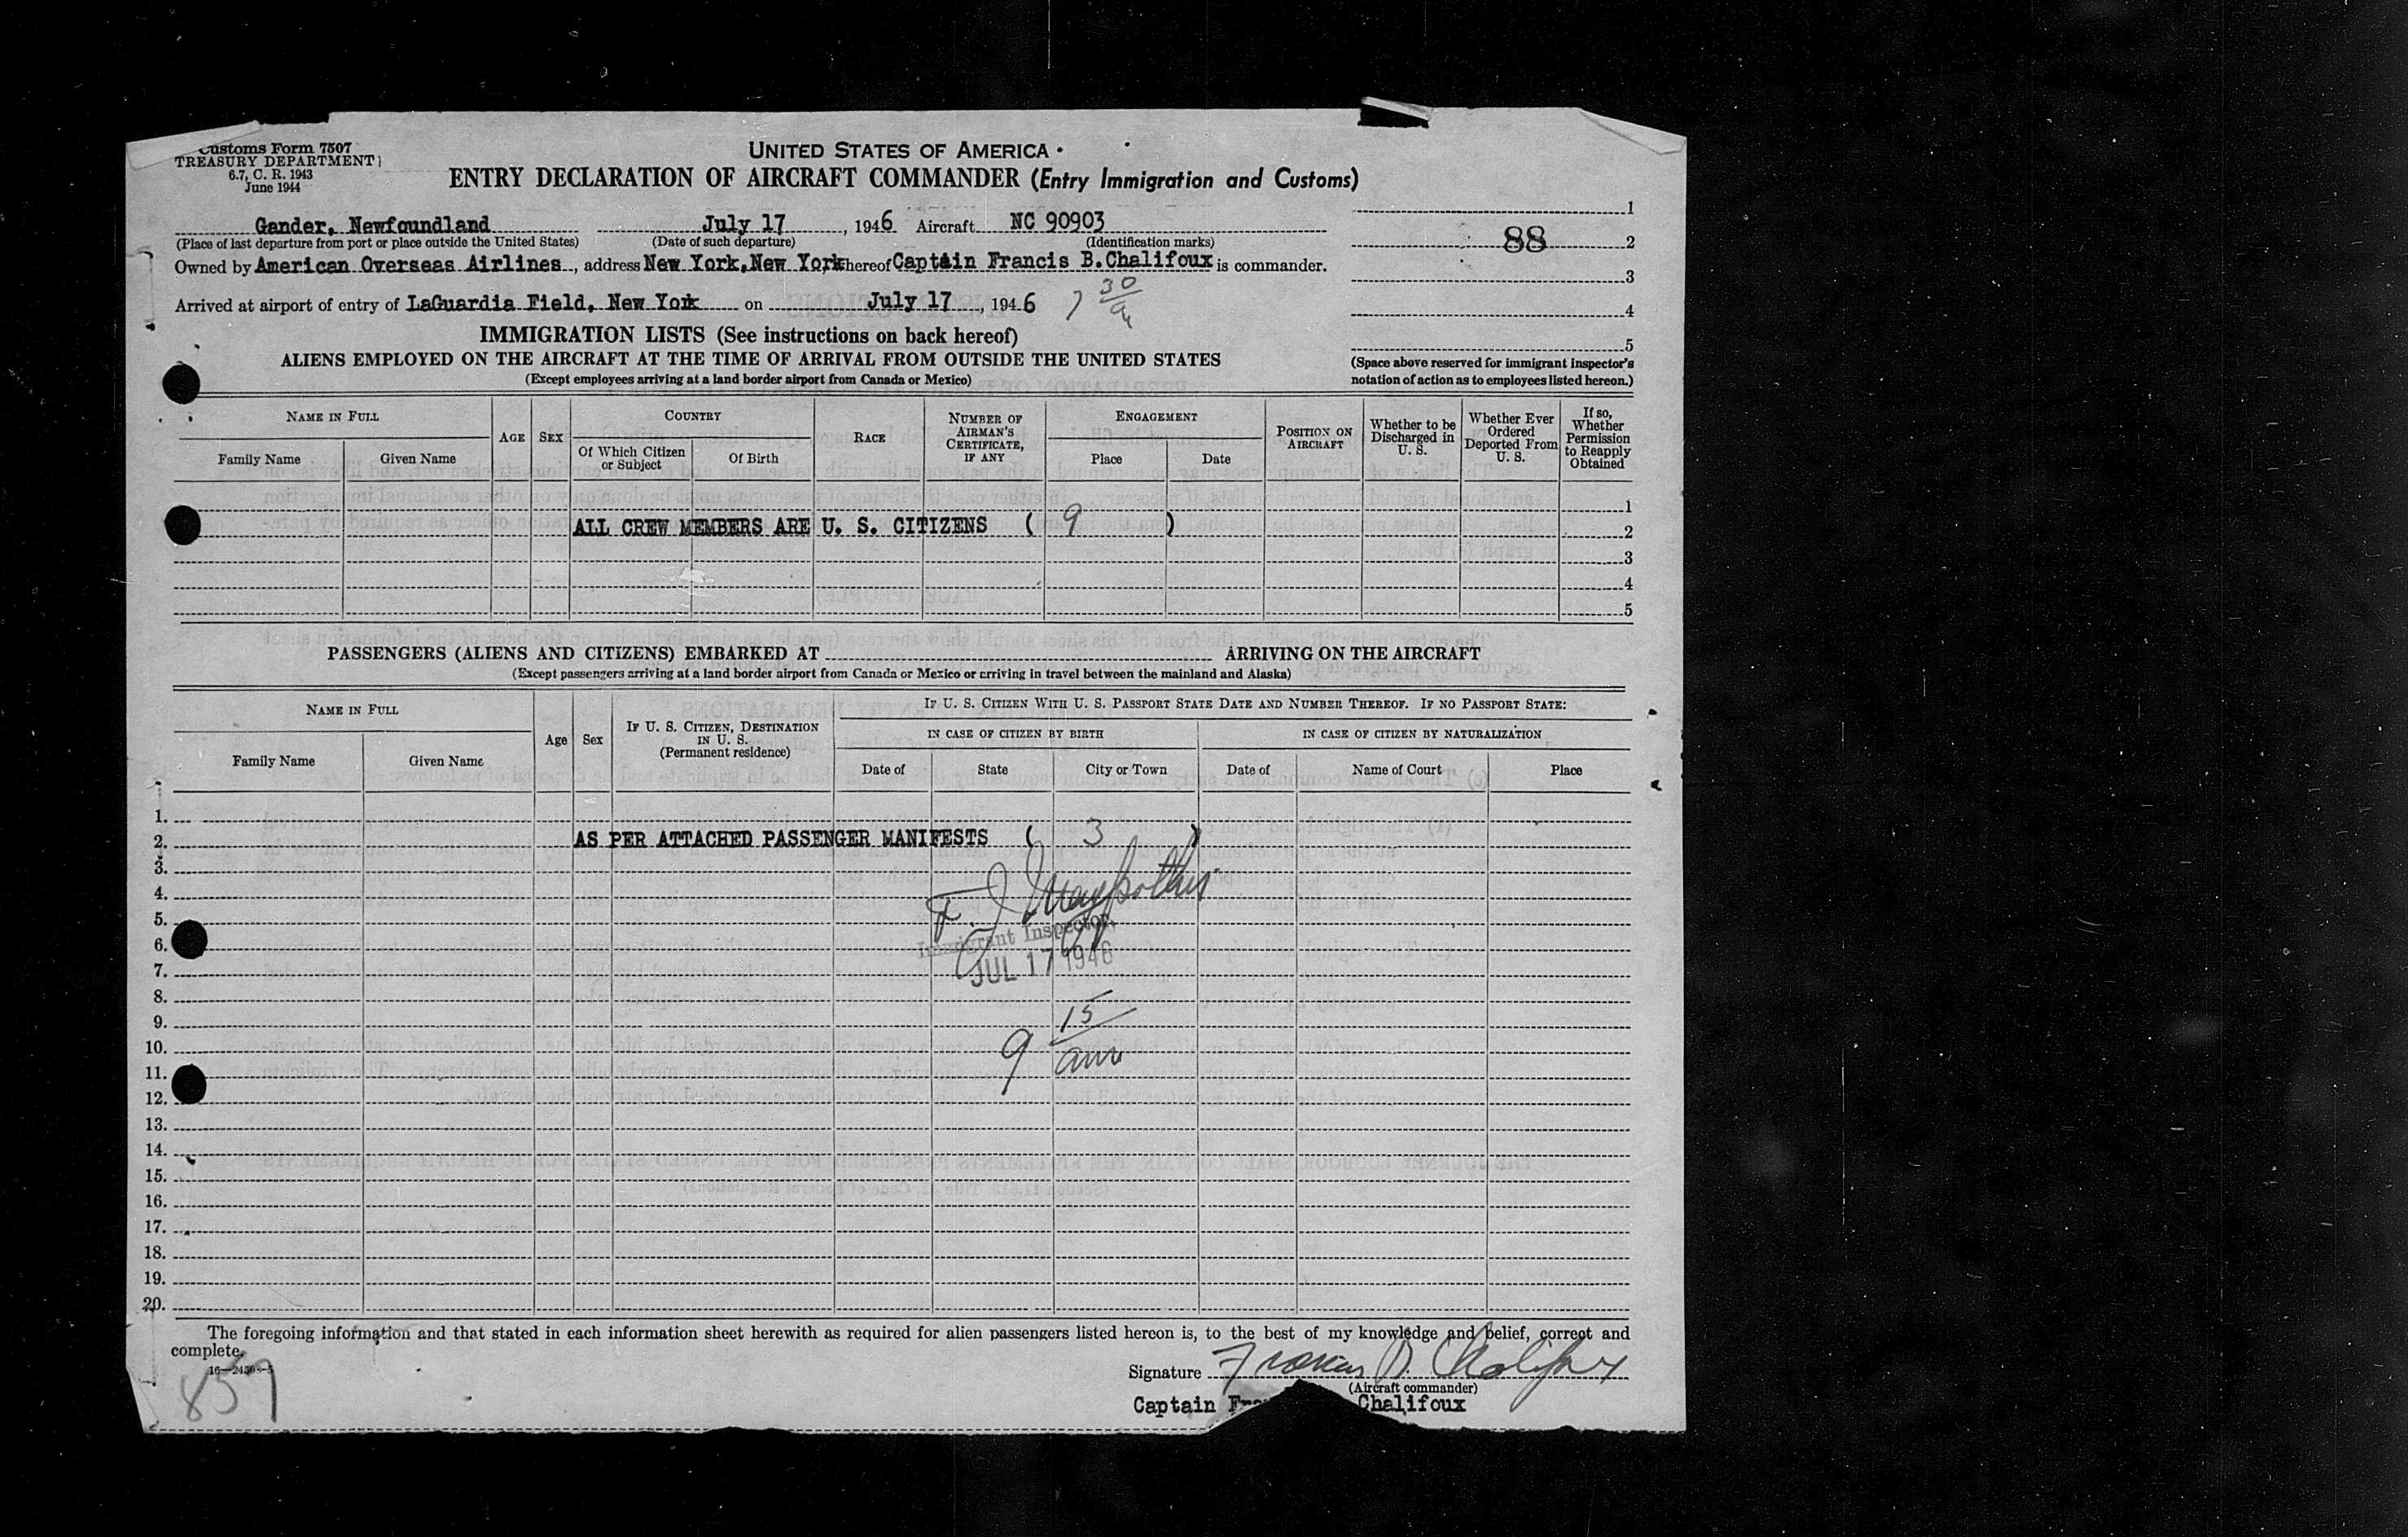 Customs Form 7507
TREASURY DEPARTMENT
6.7, C. R. 1943
June 1944
UNITED STATES OF AMERICA
ENTRY DECLARATION OF AIRCRAFT COMMANDER (Entry Immigration and Customs)
Gander, Newfoundland July 17, 1946 Aircraft NC 90903
(Place of last departure from port or place outside the United States) (Date of such departure) (Identification marks)
Owned by American Overseas Airlines, address New York, New York thereof Captain Francis B. Chalifoux is commander.
Arrived at airport of entry of LaGuardia Field, New York on July 17, 1946 7 30
1
88 2
3
4
5
(Space above reserved for immigrant inspector's
notation of action as to employees listed hereon.)
IMMIGRATION LISTS (See instructions on back hereof)
ALIENS EMPLOYED ON THE AIRCRAFT AT THE TIME OF ARRIVAL FROM OUTSIDE THE UNITED STATES
(Except employees arriving at a land border airport from Canada or Mexico)
NAME IN FULL
Family Name Given Name
AGE
SEX
COUNTRY
Of Which Citizen or Subject
Of Birth
RACE
NUMBER OF AIRMAN'S CERTIFICATE, IF ANY
ENGAGEMENT
Place Date
POSITION ON AIRCRAFT
Whether to be Discharged in U. S.
Whether Ever Ordered Deported From U. S.
If so, Whether Permission to Reapply Obtained
1
ALL CREW MEMBERS ARE U. S. CITIZENS ( 9 ) 2
3
4
5
PASSENGERS (ALIENS AND CITIZENS) EMBARKED AT ARRIVING ON THE AIRCRAFT
(Except passengers arriving at a land border airport from Canada or Mexico or arriving in travel between the mainland and Alaska)
NAME IN FULL
Family Name Given Name
Age
Sex
IF U. S. CITIZEN, DESTINATION IN U. S.
(Permanent residence)
IF U. S. CITIZEN WITH U. S. PASSPORT STATE DATE AND NUMBER THEREOF. IF NO PASSPORT STATE:
IN CASE OF CITIZEN BY BIRTH
Date of State City or Town
IN CASE OF CITIZEN BY NATURALIZATION
Date of Name of Court Place
1.
2. AS PER ATTACHED PASSENGER MANIFESTS ( 3 )
3.
4.
5.
Immigrant Inspector.
6.
JUL 17 1946
7.
8.
9.
9 15 am
10.
11.
12.
13.
14.
15.
16.
17.
18.
19.
20.
The foregoing information and that stated in each information sheet herewith as required for alien passengers listed hereon is, to the best of my knowledge and belief, correct and
complete.
Signature Francis B. Chalifoux
(Aircraft commander)
Captain Chalifoux